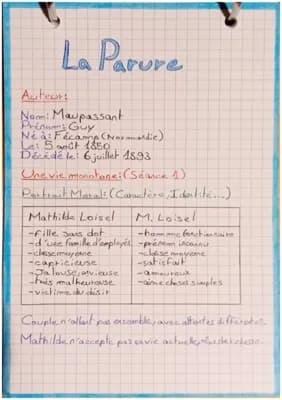 La Parure
Auteur:
Nom: Maupassant
Prénom: Guy
Né à: Fécamp (Normandie)
Le: 5 août 1850
Décédé le: 6 juillet 1893
Une vie monotone: (Séance 1)
Portrait Moral: (Caractère, Identité...)
Mathilde Loisel
M. Loisel
- fille sans dot
- homme fonctionnaire
- d'une famille d'employés
- prénom inconnu
- classe moyenne
- classe moyenne
- capricieuse
- satisfait
- Jalouse, envieuse
- amoureux
- très malheureuse
- aime choses simples
- victime du désir
Couple n'allant pas ensemble, avec attentes différentes.
Mathilde n'accepte pas sa vie actuelle,